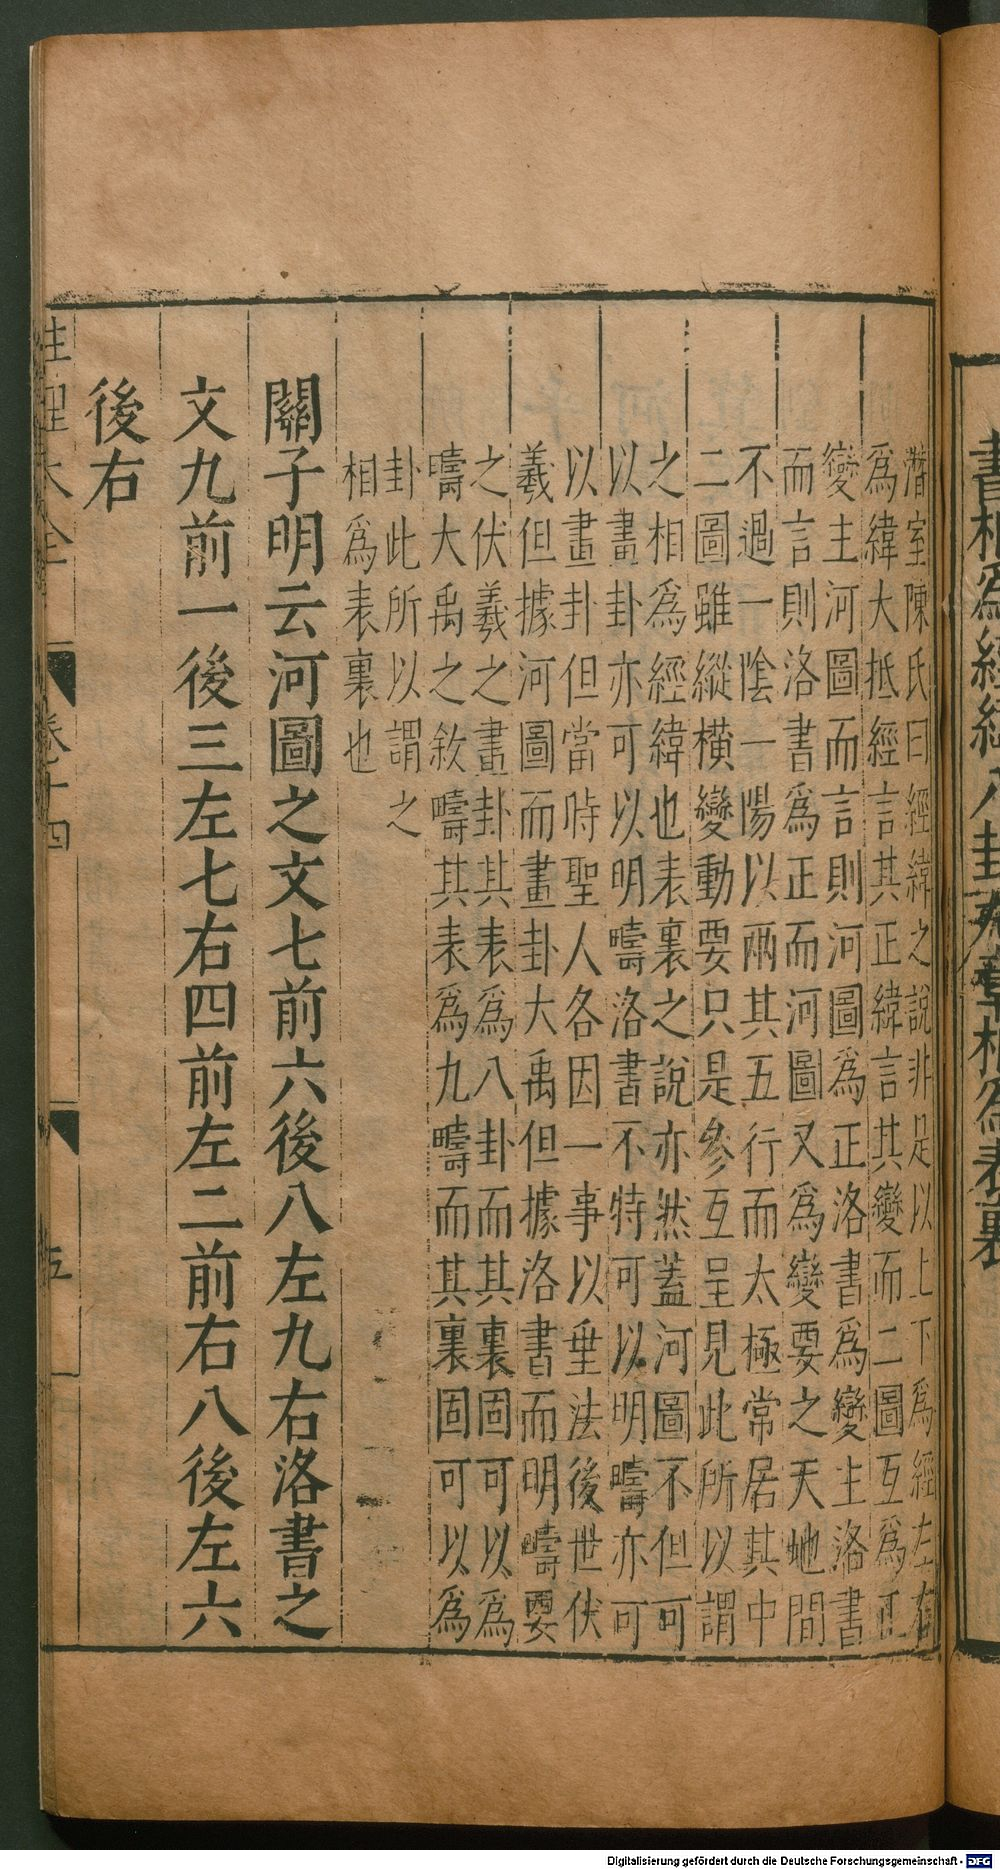 書相爲經緯八卦九章相爲表裏
潛室陳氏曰經緯之說非是以上下爲經左右
爲緯大抵經言其正緯言其變而二圖互爲正
變主河圖而言則河圖爲正洛書爲變主洛書
而言則洛書爲正而河圖又爲變要之天地間
不過一陰一陽以兩其五行而太極常居其中
二圖雖縱橫變動要只是參互呈見此所以謂
之相爲經緯也表裏之說亦然蓋河圖不但可
以畫卦亦可以明疇洛書不特可以明疇亦可
以畫卦但當時聖人各因一事以垂法後世伏
羲但據河圖而畫卦大禹但據洛書而明疇要
之伏羲之畫卦其表爲八卦而其裏固可以爲
疇大禹之敘疇其表爲九疇而其裏固可以爲
卦此所以謂之
相爲表裏也
關子明云河圖之文七前六後八左九右洛書之
文九前一後三左七右四前左二前右八後左六
後右
性理大全 卷十四 五
Digitalisierung gefördert durch die Deutsche Forschungsgemeinschaft - DFG